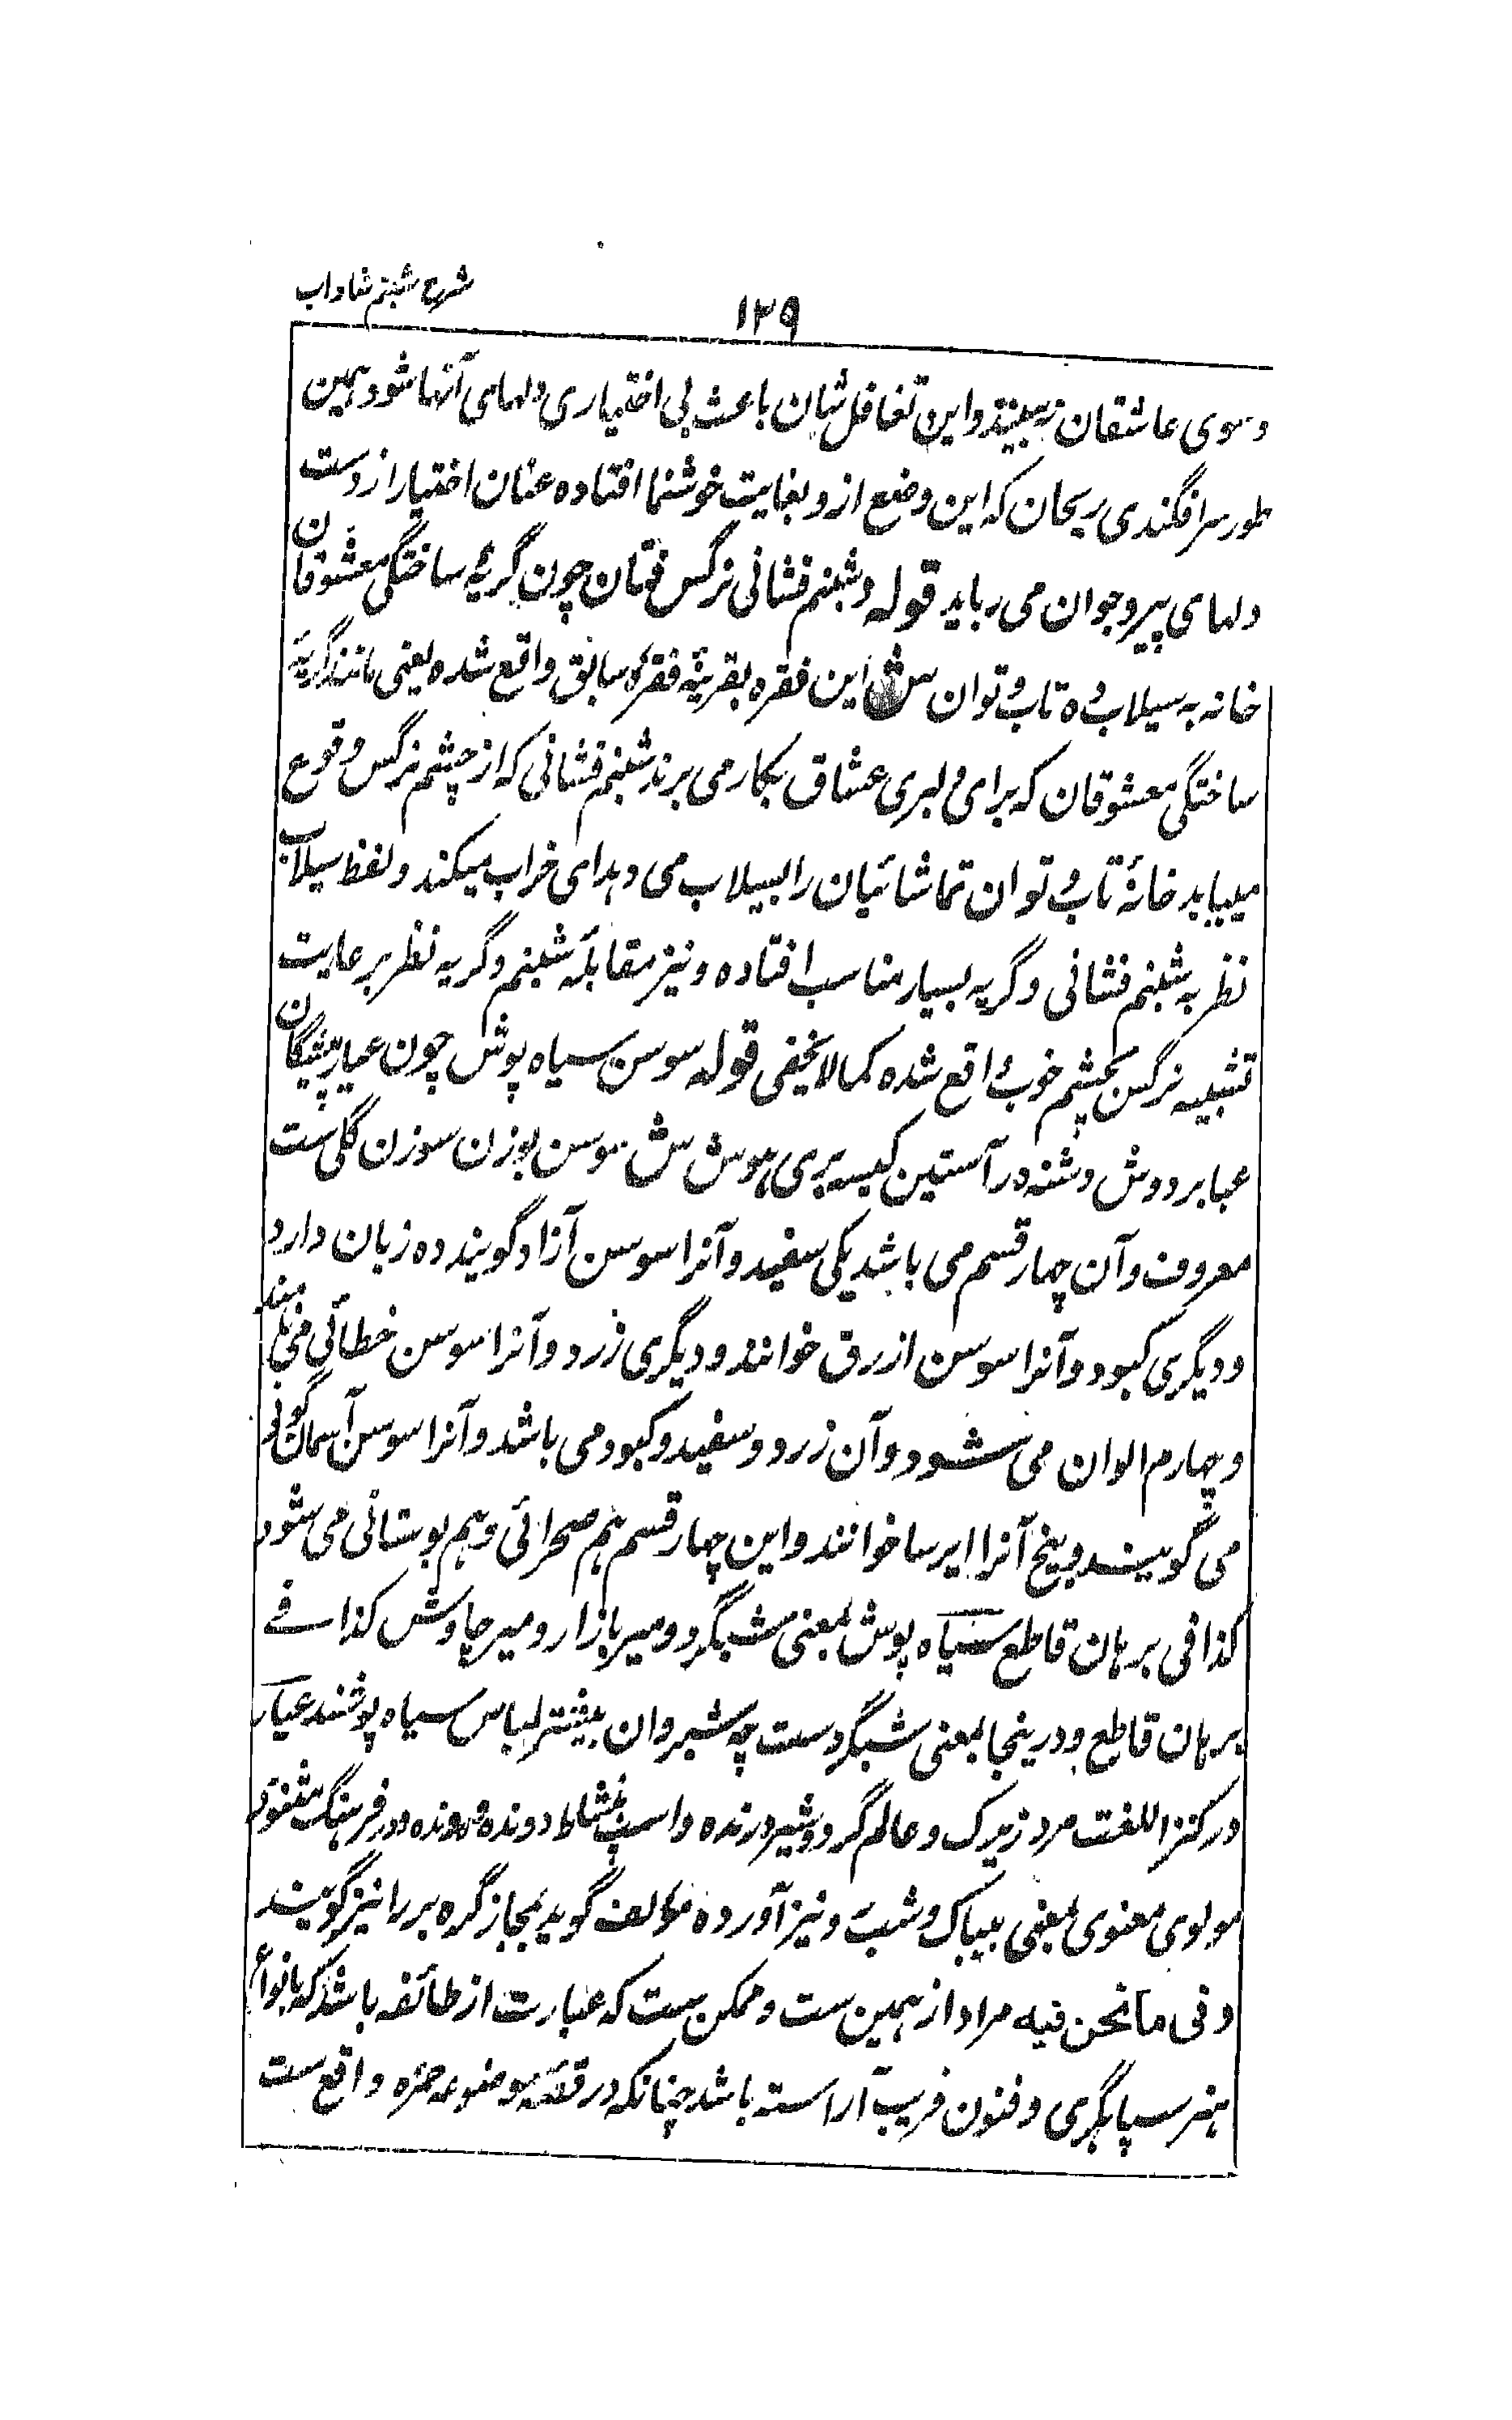 شرح شبنم شاداب
۱۲۹
و سوی عاشقان نه بینند و این تغافل شان باعث بی اختیاری دلهای آنها شود بهمین
طور سرافگندی ریحان که این وضع از و بغایت خوشنما افتاده عنان اختیار از دست
دلهای پیر و جوان می رباید قوله و شبنم فشانی نرگس فتان چون گریهٔ ساختگی معشوقان
خانه به سیلاب ده تاب و توان ش این فقره بقرینهٔ فقرهٔ سابق واقع شده یعنی مانند گریهٔ
ساختگی معشوقان که برای دلبری عشاق بکار می برند شبنم فشانی که از چشم نرگس وقوع
مییابد خانهٔ تاب و توان تماشائیان را بسیلاب می دهد ای خراب میکند و لفظ سیلاب
نظر به شبنم فشانی و گریه بسیار مناسب افتاده و نیز مقابلهٔ شبنم و گریه نظر برعایت
تشبیه نرگس بچشم خوب واقع شده کما لا یخفی قوله سوسن سیاه پوش چون عیار پیشگان
عبا بر دوش دشنه در آستین کیسه بری هوش ش سوسن بوزن سوزن گلی ست
معروف و آن چهار قسم می باشد یکی سفید و آنرا سوسن آزاد گویند ده زبان دارد
و دیگری کبود و آنرا سوسن ازرق خوانند و دیگری زرد و آنرا سوسن خطائی می نامند
و چهارم الوان می شود و آن زرد و سفید و کبود می باشد و آنرا سوسن آسمان گونی
می گویند و بیخ آنرا ایرسا خوانند و این چهار قسم هم صحرائی و هم بوستانی می شود
کذا فی برهان قاطع سیاه پوش بمعنی شبگرد و میر بازار و میر چاوش کذا فے
برهان قاطع و درینجا بمعنی شبگردست چه شبروان بیشتر لباس سیاه پوشند عیار
در کنز اللغت مرد زیرک و عالم گرد و شیر درنده و اسپ نشاط دونده و در فرهنگ مثنوی
مولوی معنوی بمعنی بیباک و شب رو نیز آورده مؤلف گوید بمجاز گره بر را نیز گویند
و فی ما نحن فیه مراد از همین ست و ممکن ست که عبارت از طائفه باشد که بانواع
هنر سپاهگری و فنون فریب آراسته باشد چنانکه در قصهٔ موضوعه حمزه واقع ست